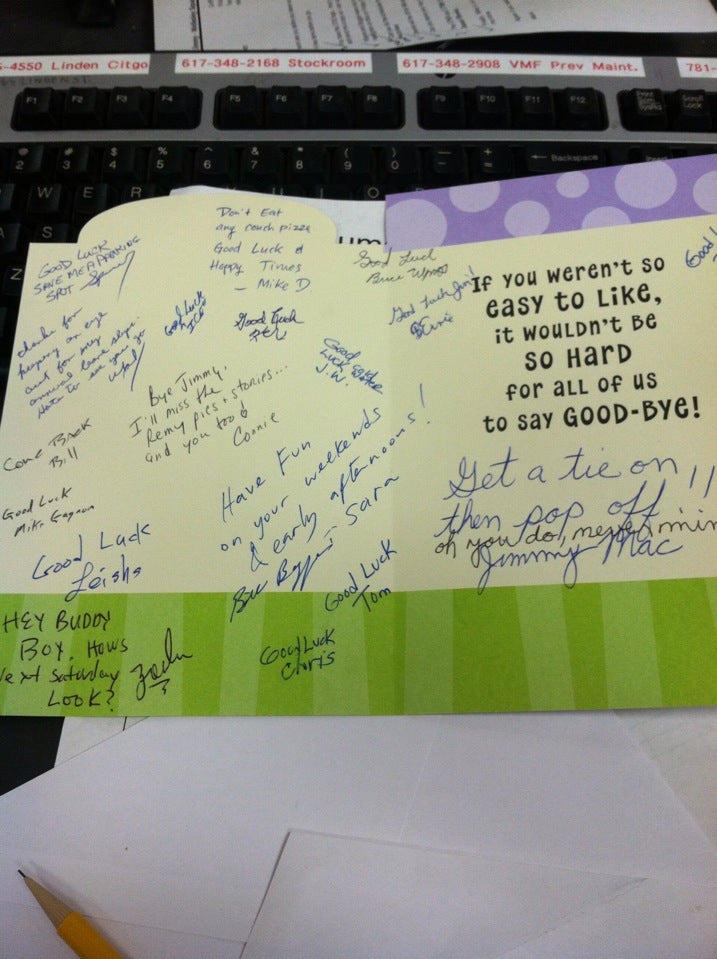 5-4550 Linden Citgo
617-348-2168 Stockroom
617-348-2908 VMF Prev Maint.
781-
F1 F2 F3 F4 F5 F6 F7 F8 F9 F10 F11 F12
Backspace
Don't Eat
any couch pizza
Good Luck &
Happy Times
- Mike D
GOOD LUCK
SAVE ME A PARKING
SPOT
Thanks for
keeping an eye
out for my
annual leave slips.
Hate to see you go
Good Luck
Good Luck
Good Luck
Bruce
Good Luck Jim!
Ernie
Good
Luck
J.W.
Good!
Bye Jimmy,
I'll miss the
Remy pics + stories...
and you too!
Connie
Come Back
Bill
Good Luck
Mike Gagnon
Good Luck
Leisha
Have Fun
on your weekends
& early afternoons!
- Sara
Good Luck
Tom
Good Luck
Chris
HEY BUDDY
BOY. HOWS
Next Saturday
LOOK?
IF YOU WEREN'T SO
EASY TO LIKE,
IT WOULDN'T BE
SO HARD
FOR ALL OF US
TO SAY GOOD-BYE!
Get a tie on!!
then pop off
oh you do, never min
Jimmy Mac